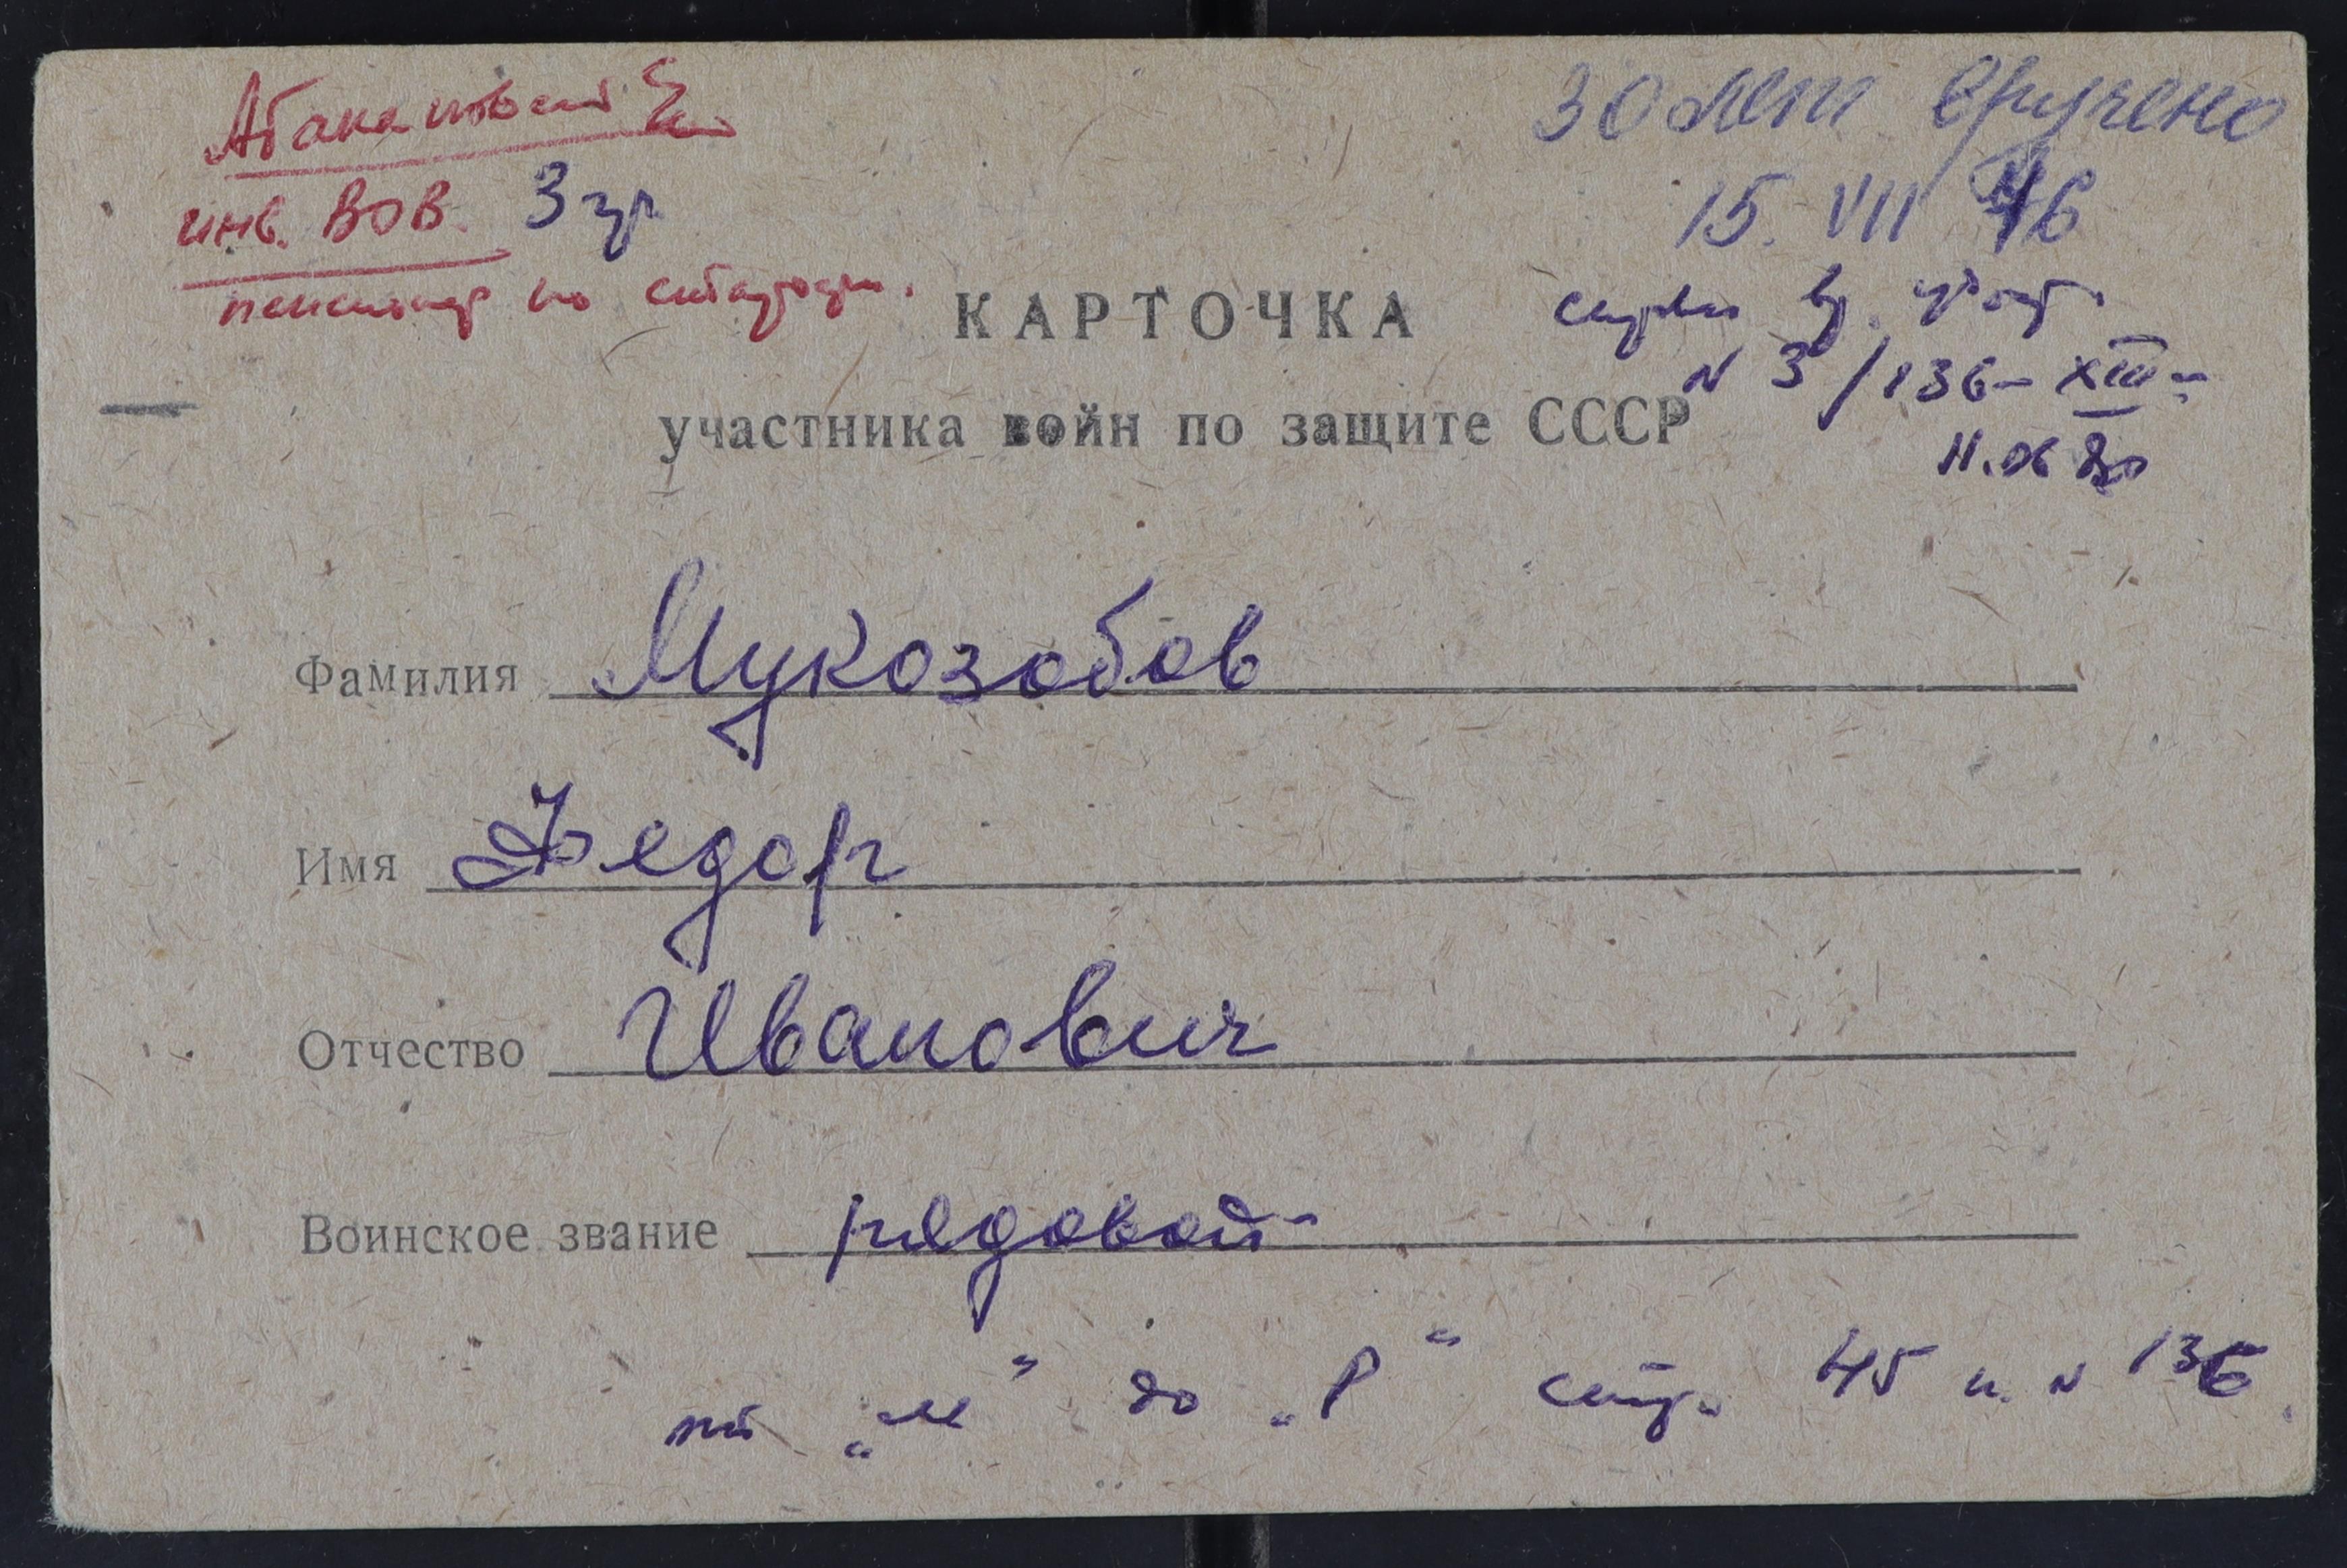 30 лет вручено
инв. ВОВ. 3 гр
15. VII 76
пенсионер по
КАРТОЧКА
N 3/136-XIII-
участника войн по защите СССР
11.06 80
Фамилия Мукозобов
Имя Федор
Отчество Иванович
Воинское звание рядовой
"м" до "Р" стр. 45 п. N 136